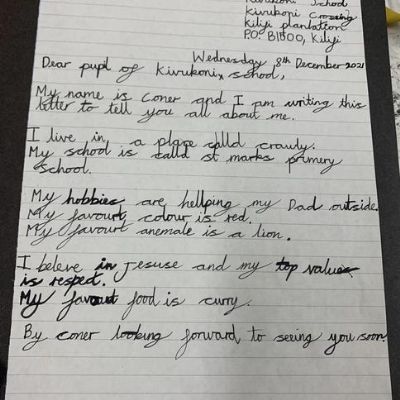 Kivukoni School
kivukoni crossing
kiliji plantation
P.O B1500, Kiliji
Wednesday 8th December 2021
Dear pupil of Kivukoni school,
My name is Coner and I am writing this
letter to tell you all about me.
I live in a place calld crawly.
My school is calld st marks primery
school.
My hobbies are hellping my Dad outside.
My favourt colour is red.
My favourt anemale is a lion.
I beleve in Jesuse and my top value
is respect.
My favout food is curry.
By coner looking forward to seeing you soon.